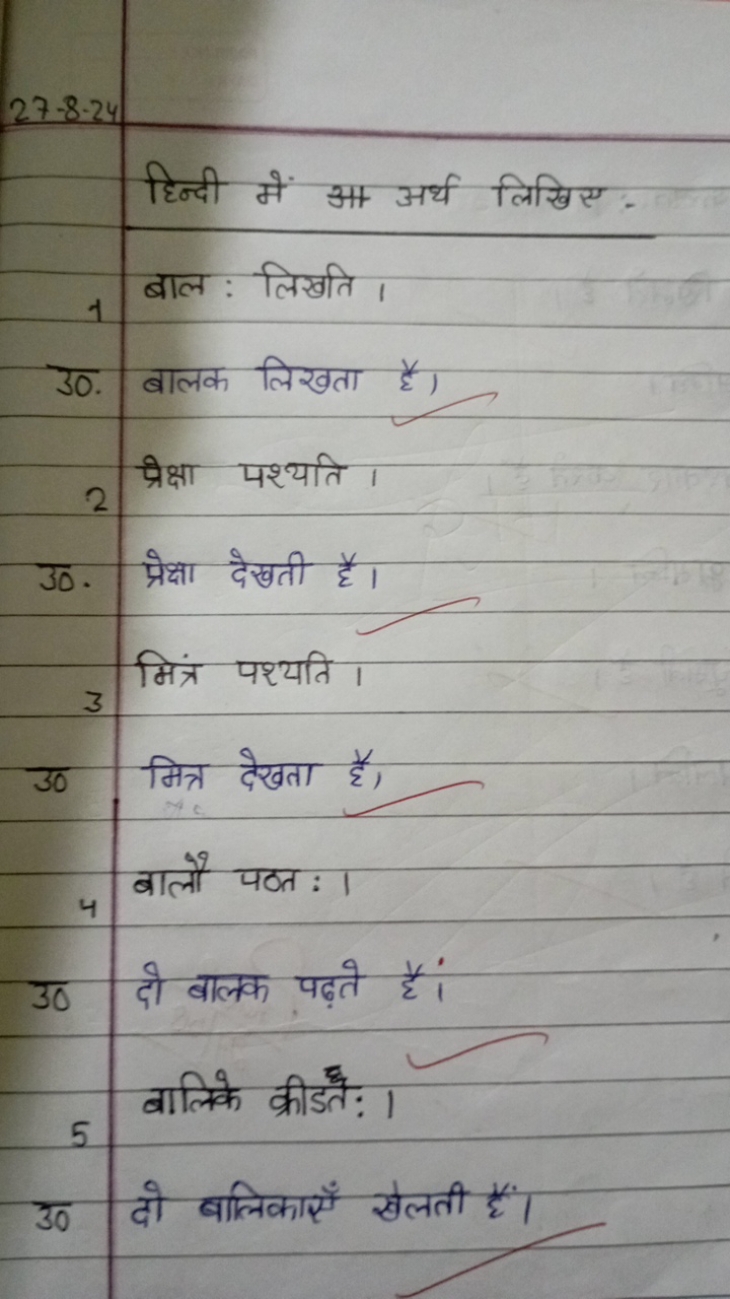 27-8-24
हिन्दी में अर्थ लिखिए :-
1 बाल: लिखति ।
उ0. बालक लिखता है।
2 प्रेक्षा पश्यति ।
उ0. प्रेक्षा देखती है।
3 मित्रं पश्यति ।
उ0 मित्र देखता है।
4 बालौ पठत: ।
उ0 दो बालक पढ़ते हैं।
5 बालिके क्रीडत: ।
उ0 दो बालिकाएँ खेलती हैं।